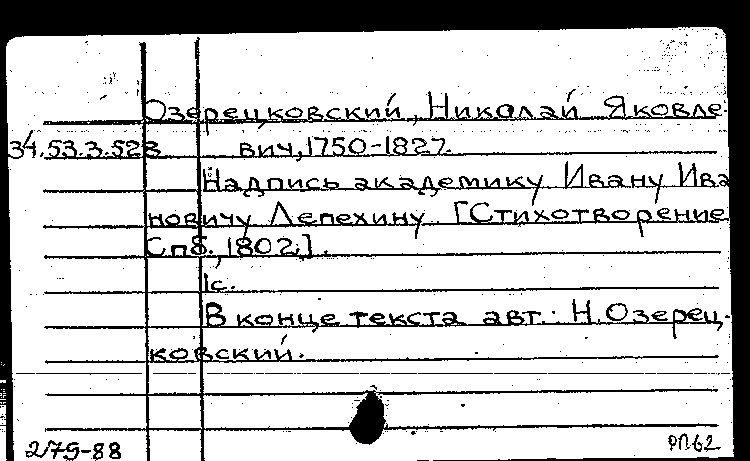 Озерецковский, Николай Яковле-
34.53.3.528 вич, 1750-1827.
Надпись академику Ивану Ива
новичу Лепехину. [Стихотворение
Спб., 1802г.].
1с.
В конце текста авт.: Н. Озерец-
ковский.
279-88 РП62